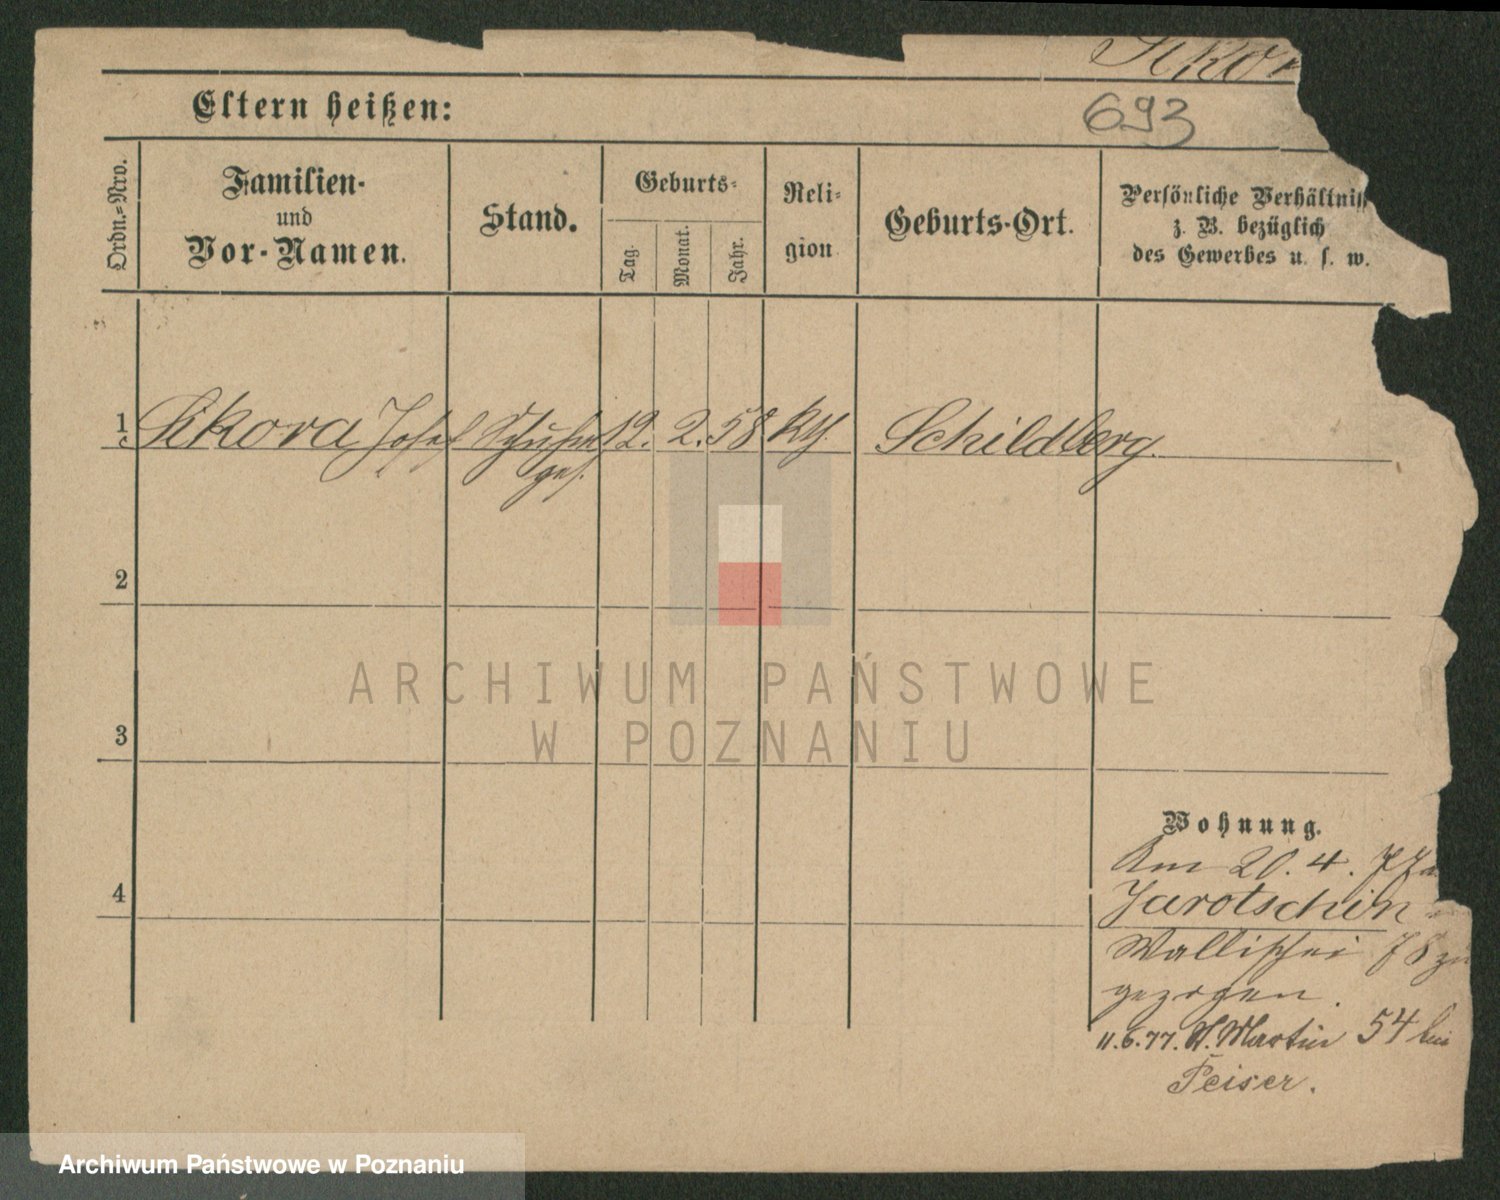 Sikor
Eltern heißen:
693
Ordn.-Nro.
Familien-
und
Vor-Namen.
Stand.
Geburts-
Tag.
Monat.
Jahr.
Reli-
gion
Geburts-Ort.
Persönliche Verhältniss
z. B. bezüglich
des Gewerbes u. s. w.
1 Sikora Josef Schuhm 12. 2. 58 kth. Schildberg.
ges.
2
3
4
Wohnung.
Am 20. 4. 77
Jarotschin
Wallischei 78 zu
gezogen.
11.6.77. St. Martin 54 bei
Peiser.
ARCHIWUM PAŃSTWOWE
W POZNANIU
Archiwum Państwowe w Poznaniu